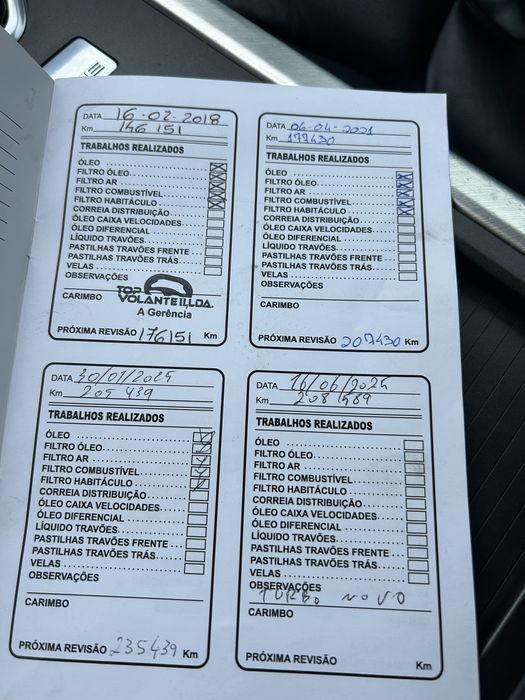 DATA 16-02-2018
Km 146 151
TRABALHOS REALIZADOS
ÓLEO
FILTRO ÓLEO
FILTRO AR
FILTRO COMBUSTÍVEL
FILTRO HABITÁCULO
CORREIA DISTRIBUIÇÃO
ÓLEO CAIXA VELOCIDADES
ÓLEO DIFERENCIAL
LÍQUIDO TRAVÕES
PASTILHAS TRAVÕES FRENTE
PASTILHAS TRAVÕES TRÁS
VELAS
OBSERVAÇÕES
TOP
VOLANTE II, LDA.
A Gerência
CARIMBO
PRÓXIMA REVISÃO 176151 Km
DATA 06-04-2021
Km 177430
TRABALHOS REALIZADOS
ÓLEO
FILTRO ÓLEO
FILTRO AR
FILTRO COMBUSTÍVEL
FILTRO HABITÁCULO
CORREIA DISTRIBUIÇÃO
ÓLEO CAIXA VELOCIDADES
ÓLEO DIFERENCIAL
LÍQUIDO TRAVÕES
PASTILHAS TRAVÕES FRENTE
PASTILHAS TRAVÕES TRÁS
VELAS
OBSERVAÇÕES
CARIMBO
PRÓXIMA REVISÃO 207430 Km
DATA 30/01/2025
Km 205 439
TRABALHOS REALIZADOS
ÓLEO
FILTRO ÓLEO
FILTRO AR
FILTRO COMBUSTÍVEL
FILTRO HABITÁCULO
CORREIA DISTRIBUIÇÃO
ÓLEO CAIXA VELOCIDADES
ÓLEO DIFERENCIAL
LÍQUIDO TRAVÕES
PASTILHAS TRAVÕES FRENTE
PASTILHAS TRAVÕES TRÁS
VELAS
OBSERVAÇÕES
CARIMBO
PRÓXIMA REVISÃO 235439 Km
DATA 16/06/2025
Km
TRABALHOS REALIZADOS
ÓLEO
FILTRO ÓLEO
FILTRO AR
FILTRO COMBUSTÍVEL
FILTRO HABITÁCULO
CORREIA DISTRIBUIÇÃO
ÓLEO CAIXA VELOCIDADES
ÓLEO DIFERENCIAL
LÍQUIDO TRAVÕES
PASTILHAS TRAVÕES FRENTE
PASTILHAS TRAVÕES TRÁS
VELAS
OBSERVAÇÕES
TURBO NOVO
CARIMBO
PRÓXIMA REVISÃO Km